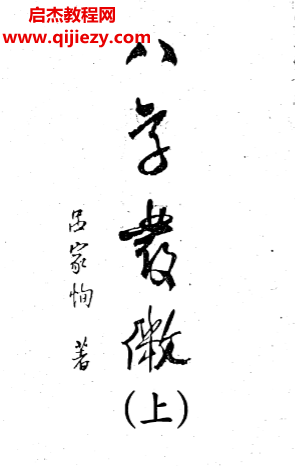 启杰教程网
www.qijiezy.com
八字發微(上)
呂家恂 著